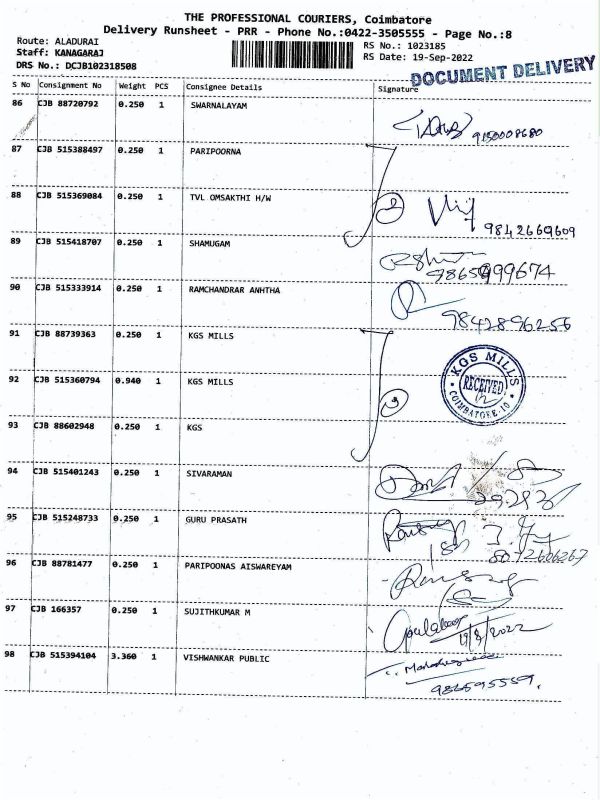 THE PROFESSIONAL COURIERS, Coimbatore
Delivery Runsheet - PRR - Phone No.:0422-3505555 - Page No.:8
Route: ALADURAI
RS No.: 1023185
Staff: KANAGARAJ
RS Date: 19-Sep-2022
DRS No.: DCJB102318508
DOCUMENT DELIVERY
S No Consignment No Weight PCS Consignee Details Signature
86 CJB 88720792 0.250 1 SWARNALAYAM
9150008680
87 CJB 515388497 0.250 1 PARIPOORNA
88 CJB 515369084 0.250 1 TVL OMSAKTHI H/W
2 9842669609
89 CJB 515418707 0.250 1 SHAMUGAM
90 CJB 515333914 0.250 1 RAMCHANDRAR ANHTHA
9842896256
91 CJB 88739363 0.250 1 KGS MILLS
92 CJB 515360794 0.940 1 KGS MILLS
3
KGS MILLS
RECEIVED
COIMBATORE-10
93 CJB 88602948 0.250 1 KGS
94 CJB 515401243 0.250 1 SIVARAMAN
95 CJB 515248733 0.250 1 GURU PRASATH
96 CJB 88781477 0.250 1 PARIPOONAS AISWAREYAM
97 CJB 166357 0.250 1 SUJITHKUMAR M
98 CJB 515394104 3.360 1 VISHWANKAR PUBLIC